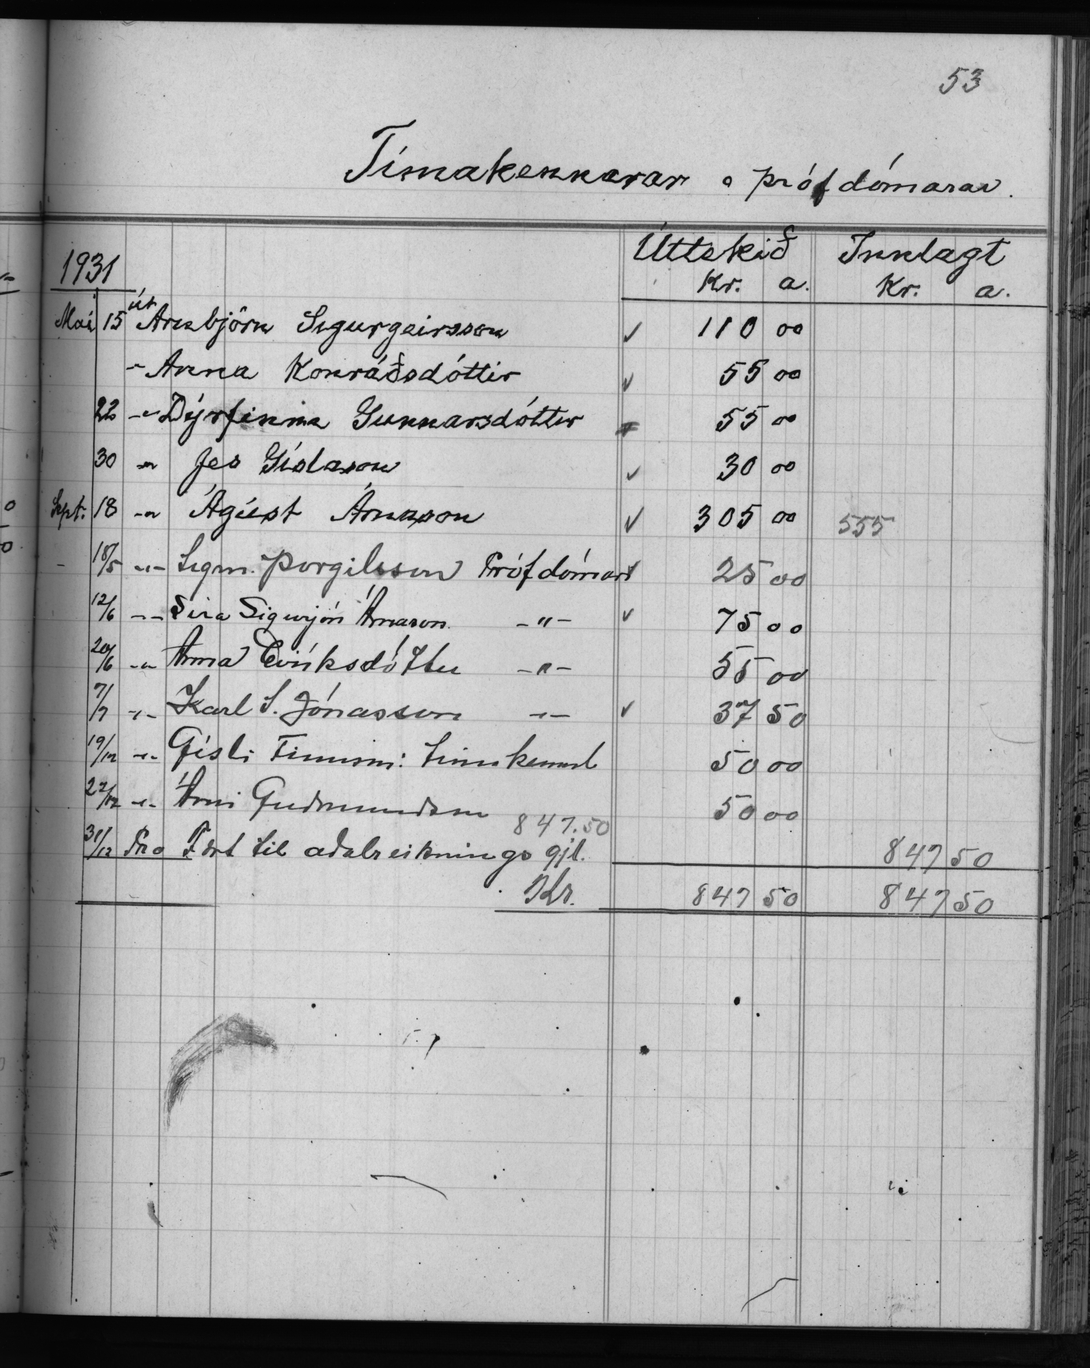 53
Tímakennarar o prófdómarar.
1931 Úttekið Innlagt
Kr. a. Kr. a.
Maí 15 út Arnbjörn Sigurgeirsson ✓ 110 00
-"- Anna Konráðsdóttir ✓ 55 00
22 -"- Dýrfinna Gunnarsdóttir 55 00
30 -"- Jes Gíslason ✓ 30 00
Sept. 18 -"- Ágúst Árnason ✓ 305 00 555
18/5 -"- Sigm. Þorgilsson Prófdómari 25 00
12/6 -"- Síra Sigurjón Árnason -"- ✓ 75 00
20/6 -"- Anna Eiríksdóttir -"- 55 00
7/7 -"- Karl S. Jónasson -"- ✓ 37 50
19/12 -"- Gísli 50 00
22/12 -"- Árni Guðmundsson 50 00
847.50
31/12 Fært til aðalreiknings gjl. 847 50
Kr. 847 50 847 50